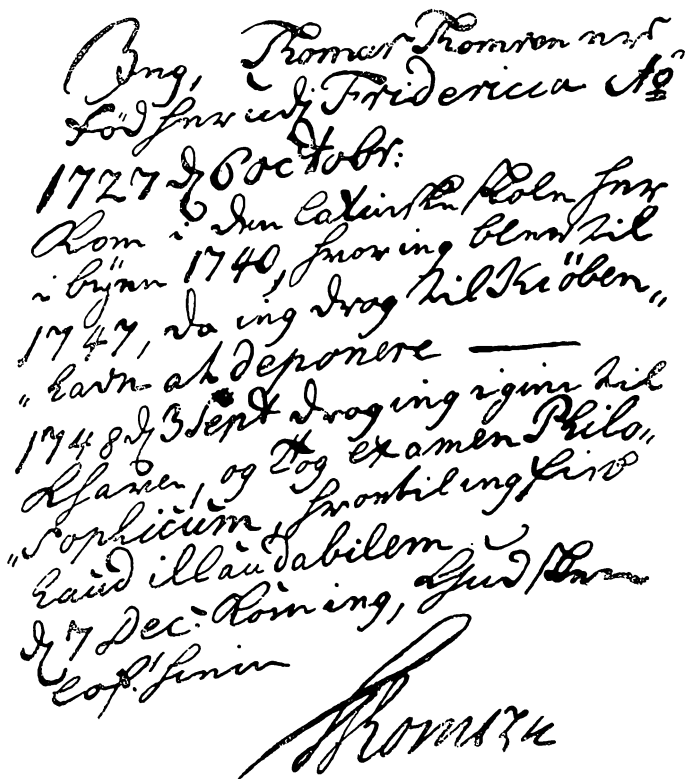 Ieg, Thomas Thomsen er
föd her udj Fridericia Aº
1727 dj 6 octobr:
Kom i den latinske skole her
i byen 1740, hvor ieg blev til
1747, da ieg drog til Kiöben„
„havn at deponere ———
1748 dj 3 Sept drog ieg igien til
Khaven, og tog examen Philo„
„sophicum, hvortil ieg fik
haud illaudabilem.
dj 7 Dec: kom ieg, Gud skee
lof! hiem
Thomsen